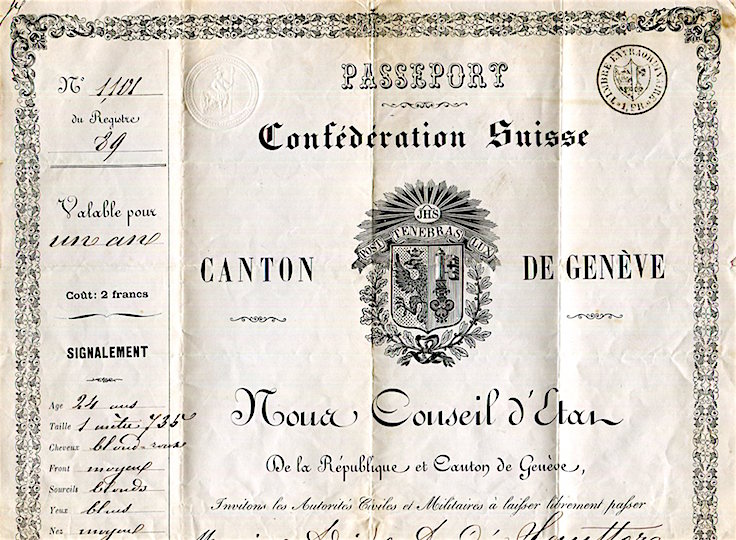 Nº 1,101
du Registre
89
Valable pour
un an
Coût: 2 francs
SIGNALEMENT
Age 24 ans
Taille 1 mètre 735
Cheveux blond-
Front moyen
Sourcils blonds
Yeux bleus
Nez moyen
PASSEPORT
TIMBRE EXTRAORDINAIRE
Confédération Suisse
JHS
POST TENEBRAS LUX
CANTON DE GENÈVE
Nous Conseil d'Etat
De la République et Canton de Genève,
Invitons les Autorités Civiles et Militaires à laisser librement passer